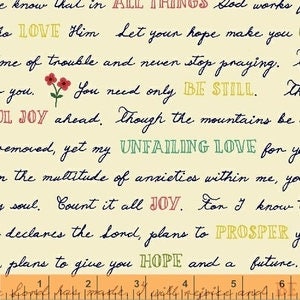 e know that in ALL THINGS God works
o LOVE Him Let your hope make you
me of trouble and never stop praying.
you. You need only BE STILL. Th
UL JOY ahead. Though the mountains be
removed, yet my UNFAILING LOVE for y
n the multitude of anxieties within me, yo
s soul. Count it all JOY. For I know t
declares the Lord, plans to PROSPER y
plans to give you HOPE and a future.
1 2 3 4 5 6